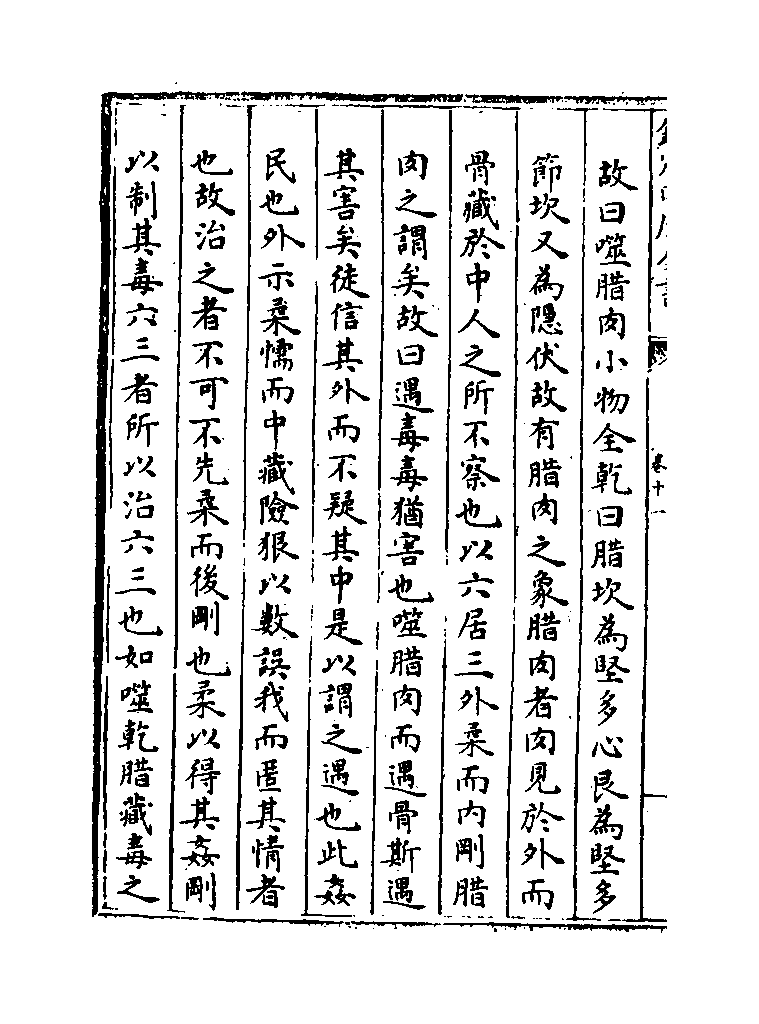 欽定四庫全書
卷十一
故曰噬腊肉小物全乾曰腊坎為堅多心艮為堅多
節坎又為隱伏故有腊肉之象腊肉者肉見於外而
骨藏於中人之所不察也以六居三外柔而内剛腊
肉之謂矣故曰遇毒毒猶害也噬腊肉而遇骨斯遇
其害矣徒信其外而不疑其中是以謂之遇也此姦
民也外示柔懦而中藏險狠以數誤我而匿其情者
也故治之者不可不先柔而後剛也柔以得其姦剛
以制其毒六三者所以治六三也如噬乾腊藏毒之